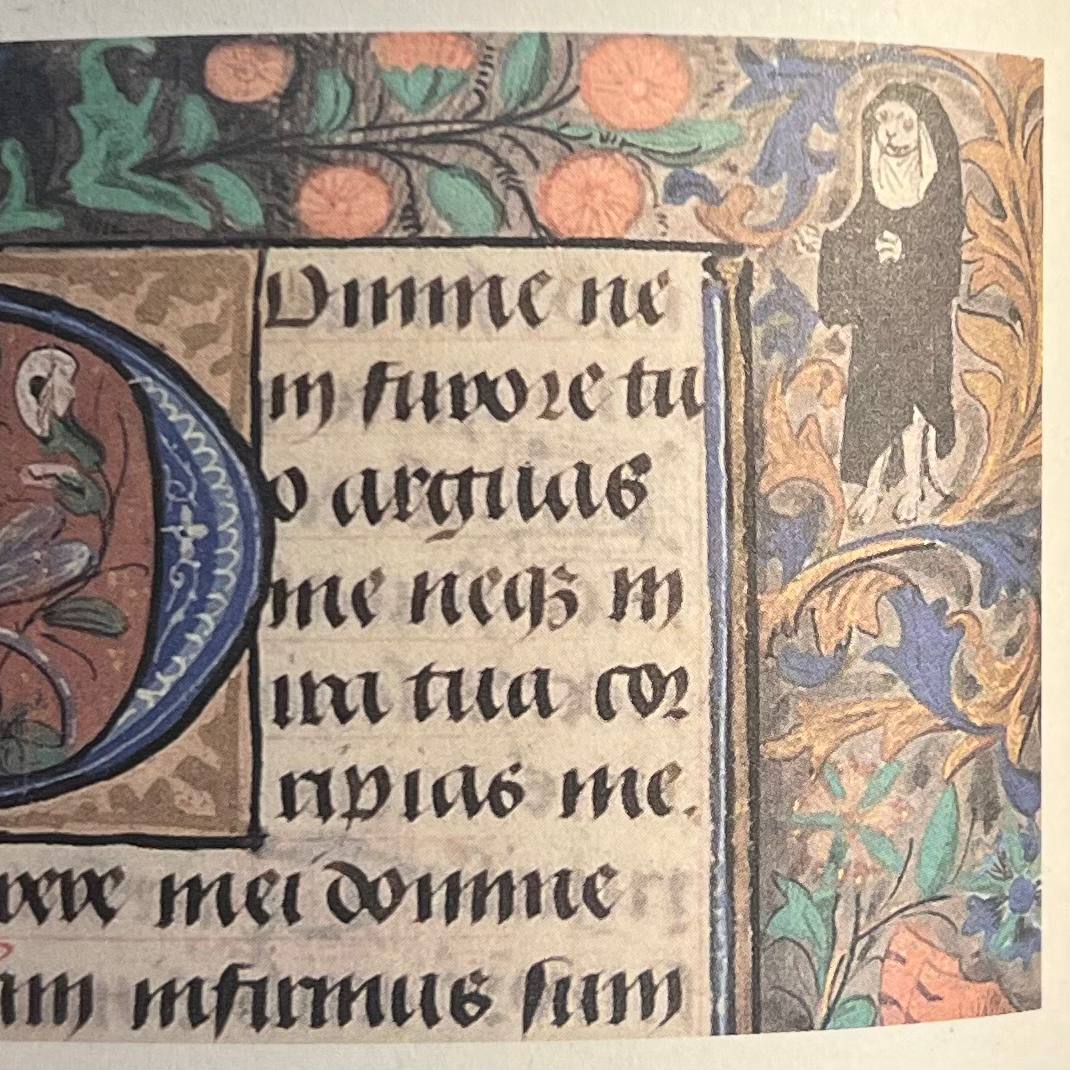 Domine ne
in furore tu
o arguas
me neqꝫ in
ira tua cor
ripias me.
mei domine
infirmus sum